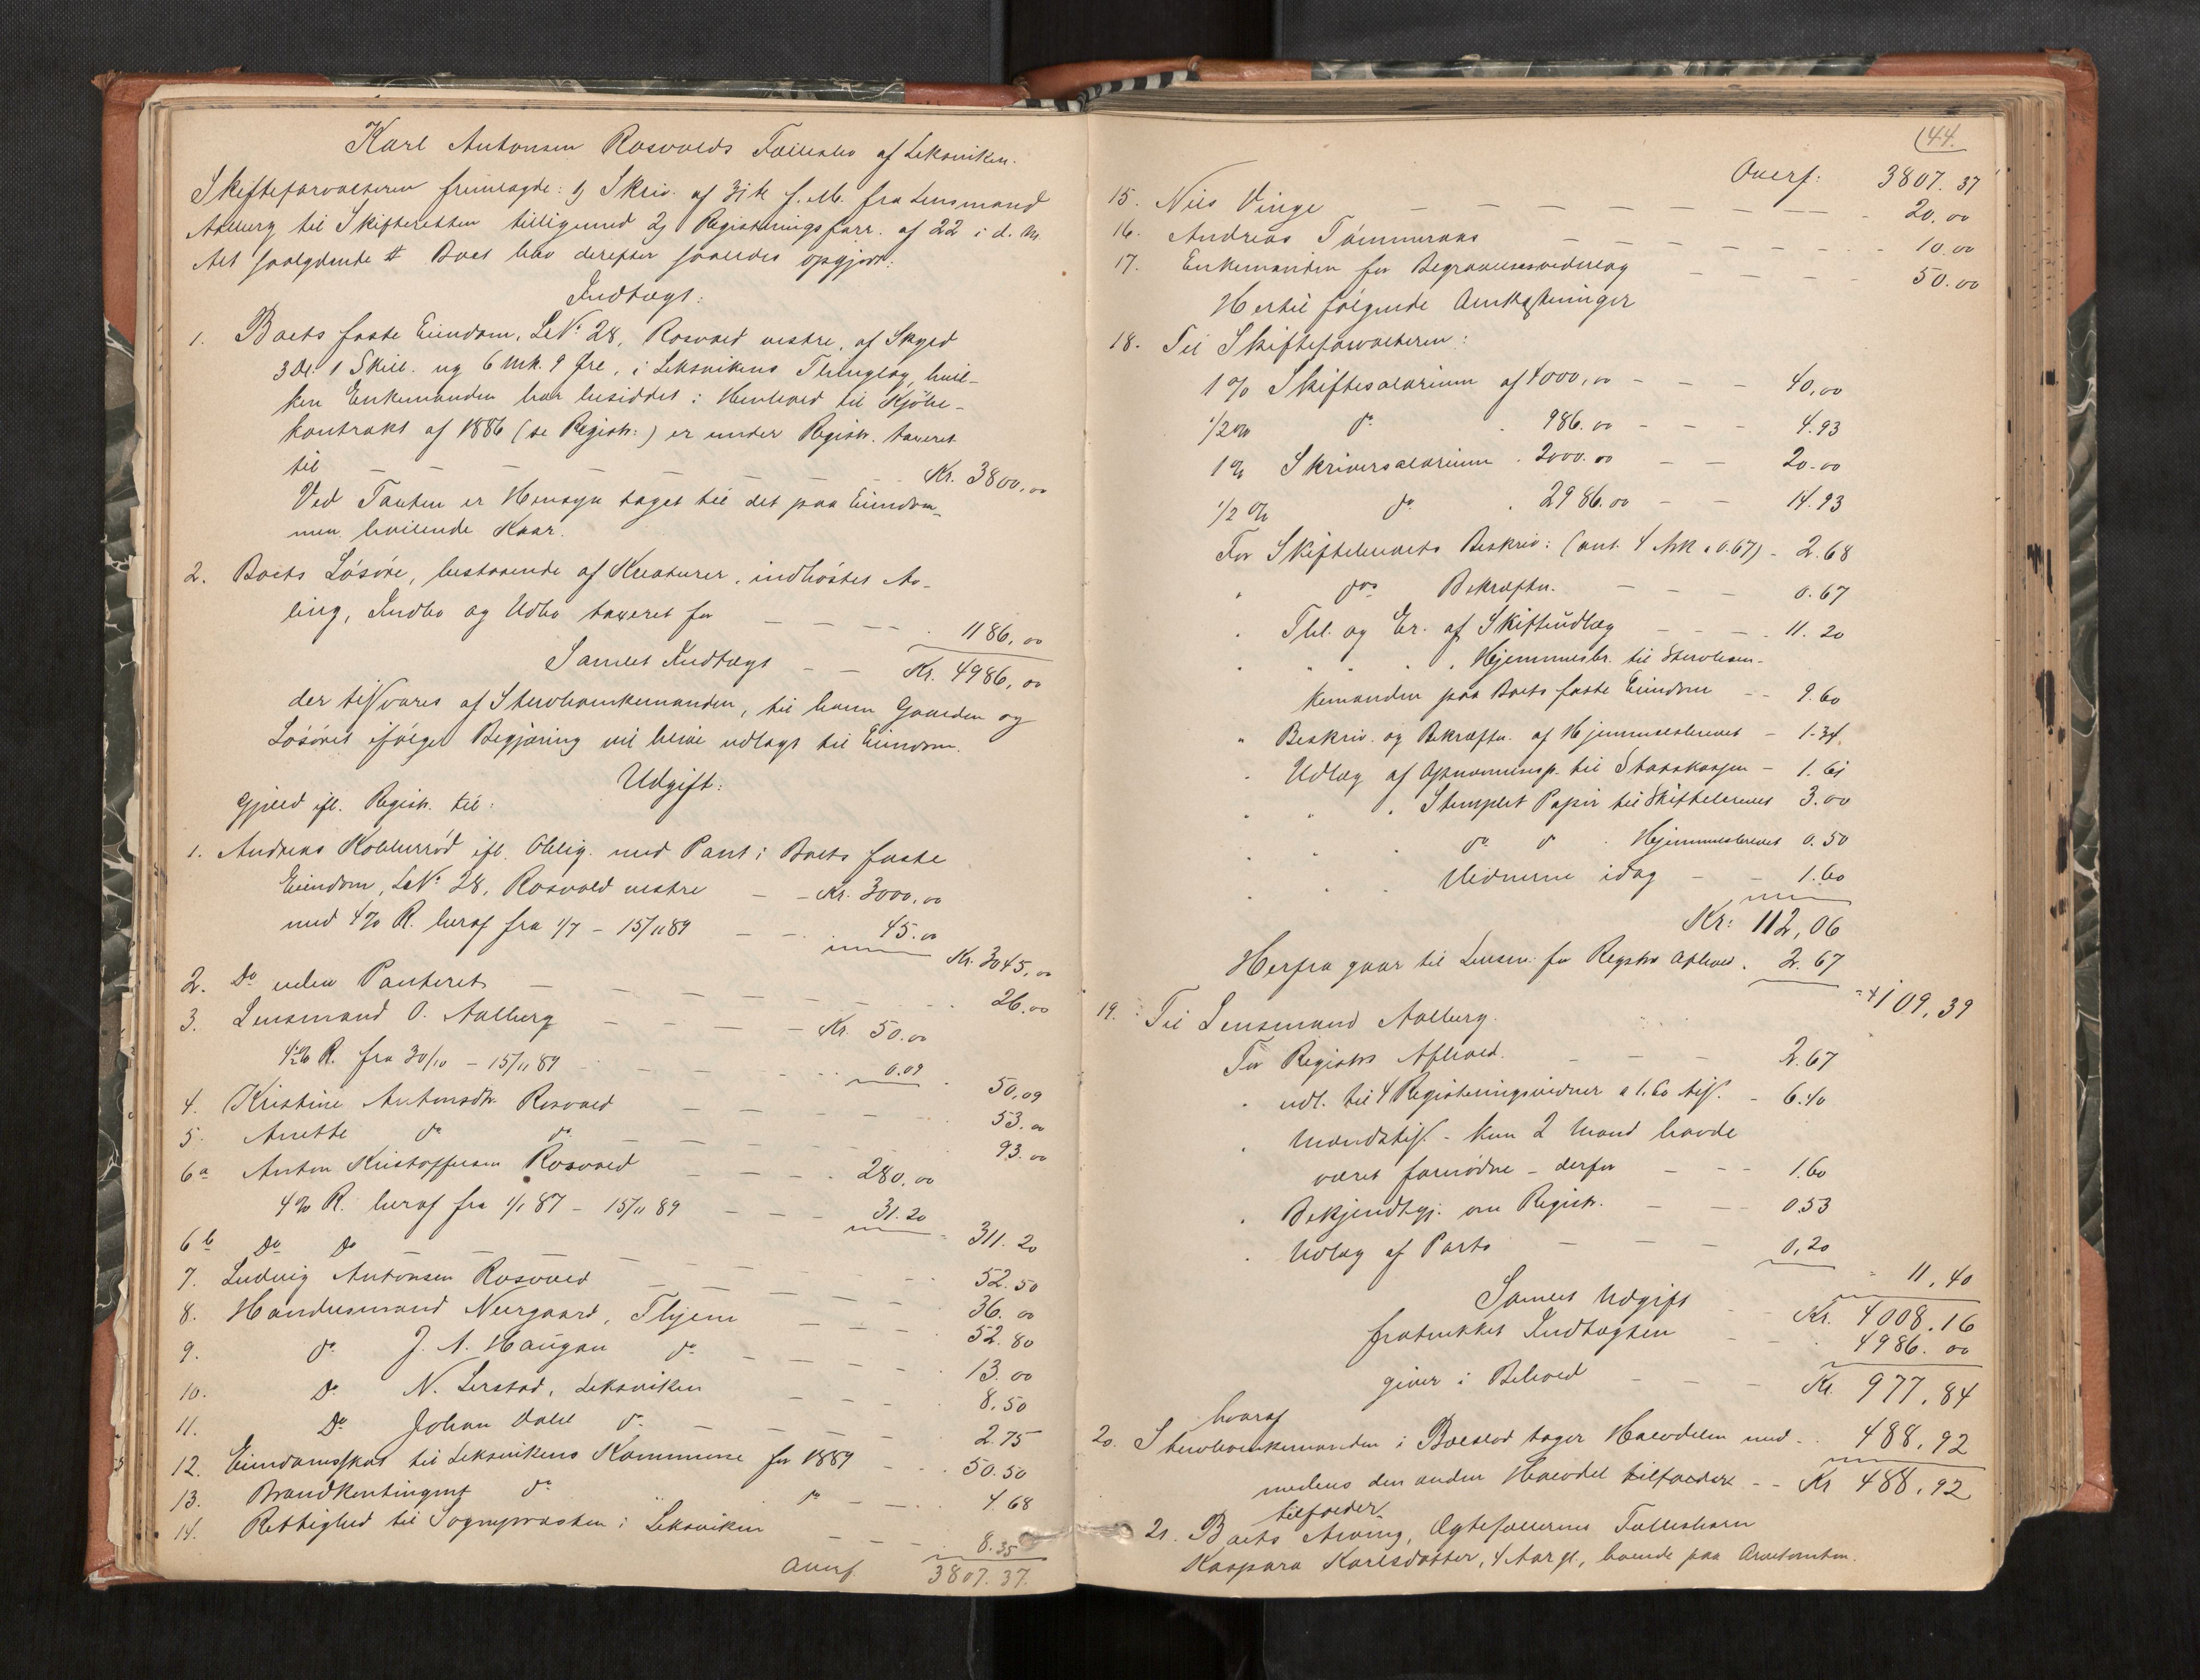 Karl Antonsen Rosvolds Fællesbo af Leksviken.
Skifteforvalteren fremlagde: 1) Skriv. af 31te f. M. fra Lensmand
Aalberg til Skifteretten tilligemed 2) Registreringsforr. af 22 i d. M.
Boet blev derefter saaledes opgjort:
Indtægt:
1. Boets faste Eiendom, LNo 28, Rosvold vestre, af Skyld
3 Dl. 1 Skill. ny 6 Mk. 9 Øre, i Leksvikens Thinglag, hvil-
ken Enkemanden har besiddet i Henhold til Kjøbe-
kontrakt af 1886 (se Registr:) er under Registr. taxeret
til — — — — — — Kr. 3800,00
Ved Taxten er Hensyn taget til det paa Eiendom-
men hvilende Kaar.
2. Boets Løsøre, bestaaende af Kreaturer, indhøstet Av-
ling, Indbo og Udbo taxeret for — — — — 1186,00
Samlet Indtægt — — Kr. 4986,00
der tilsvares af Stervboenkemanden, til hvem Gaarden og
Løsøret ifølge Begjæring vil blive udlagt til Eiendom.
Udgift:
Gjæld ifl. Registr. til:
1. Andreas ifl. Oblig. med Pant i Boets faste
Eiendom, LNo 28, Rosvold vestre — — Kr. 3000,00
med 4% R. heraf fra 1/7 – 15/11 89 — — 45.00
Kr. 3045,00
2. Do uden Panteret — — — — — — 26.00
3. Lensmand O. Aalberg — — — — Kr. 50.00
4½% R. fra 30/10 – 15/11 89 — — — — 0.09
50,09
4. Kristine Antonsdtr. Rosvold — — — — 53.00
5. Anette do do — — — — — 93.00
6a Anton Kristoffersen Rosvold — — — 280.00
4% R. heraf fra 1/1 87 – 15/11 89 — — — 31.20
311.20
6b Do Do — — — — — — 52.50
7. Ludvig Antonsen Rosvold — — — — 36.00
8. Handelsmand Neergaard, Thjem — — — 52.80
9. do J. A. Haugan do — — — — 13.00
10. Do N. Lerstad, Leksviken — — — 8.50
11. Do Johan Dahl do — — — — 2.75
12. Eiendomsskat til Leksvikens Kommune for 1889 — — 50.50
13. Brandkontingent do do — — 4.68
14. Rettighed til Sognepræsten i Leksviken — — — 8.35
Overf. 3807.37.
44.
Overf: 3807.37
15. Nils Vinge — — — — — — — 20.00
16. Andreas Tømmeraas — — — — — — 10.00
17. Enkemanden for Begravelsesvederlag — — — 50.00
Hertil følgende Omkostninger
18. Til Skifteforvalteren:
1% Skiftesalarium af 4000,00 — — — 40,00
1/2% do . 986.00 — — — 4.93
1% Skriversalarium . 2000.00 — — 20.00
1/2% do . 2986.00 — — 14.93
For Skiftebrevets Beskriv: (ant. 4 Ark a 0.67) - 2.68
" dos Bekræftn. — — — 0.67
" Thl. og Er. af Skifteudlæg — — — 11.20
" " " " Hjemmelsbr. til Stervboen-
kemanden paa Boets faste Eiendom — — 9.60
" Beskriv. og Bekræftn. af Hjemmelsbrevet — 1.34
" Udlæg af til Statskassen — 1.61
" " " Stemplet Papir til Skiftebrevet 3.00
" " " do do " Hjemmelsbrevet 0.50
" " " Vidnerne idag — — 1.60
Kr: 112,06
Herfra gaar til Lensm: for Registrs Afhold. 2.67
109,39
19. Til Lensmand Aalberg.
For Registrs Afhold. — — — 2.67
" udl. til 4 Registreringsvidner a 1.60 tils. — 6.40
" – kun 2 Mand havde
været fornødne – derfor — — — 1.60
" Bekjendtgj. om Registr. — — — 0.53
" Udlæg af Porto — — — 0,20
11,40
Samlet Udgift — — Kr. 4008.16
fratrukket Indtægten — — 4986.00
giver i Behold — — — Kr. 977,84
hvoraf
20. Stervboenkemanden i Boeslod tager Halvdelen med — 488,92
medens den anden Halvdel tilfalder — Kr 488,92
tilfalder
21. Boets Arving, Ægtefællernes Fællesbarn
Kaspara Karlsdatter, 4 Aar gl.,